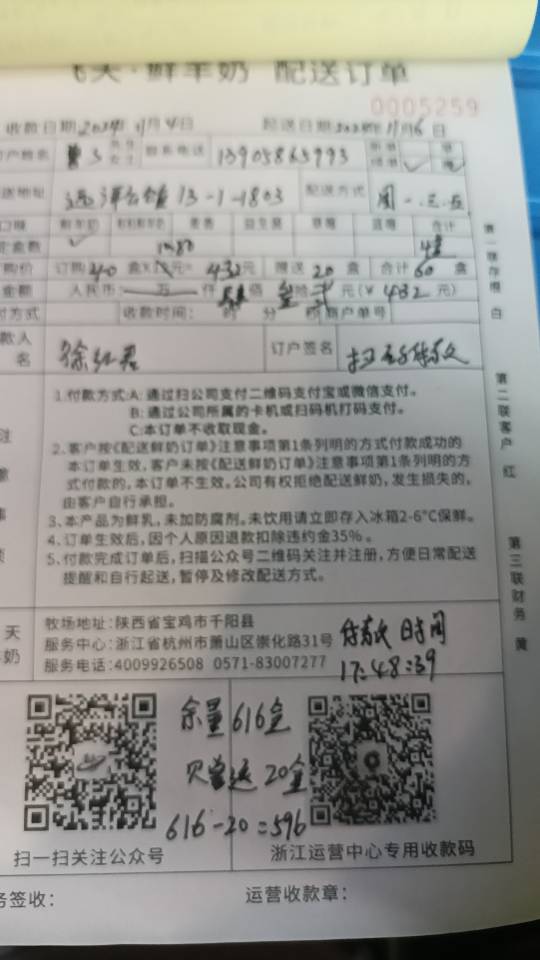 飞天·鲜羊奶 配送订单
0005259
收款日期2024年11月4日 起送日期2024年11月6日
订户姓名 联系电话 13905865993
送地址 远洋公馆 13-1-1803 配送方式 周一.三.五
口味 鲜羊奶 益生菌 草莓 蓝莓 合计
定盒数
购价 订购 40 盒 元= 432元 赠送 20 盒 合计 60 盒
金额 人民币: 万 仟 肆佰 叁拾 贰 元(¥ 432 元)
付方式 收款时间: 时 分 商户单号
款人名 徐红君 订户签名
1.付款方式:A: 通过扫公司支付二维码支付宝或微信支付。
B: 通过公司所属的卡机或扫码机打码支付。
C:本订单不收取现金。
2.客户按《配送鲜奶订单》注意事项第1条列明的方式付款成功的
本订单生效,客户未按《配送鲜奶订单》注意事项第1条列明的方
式付款的,本订单不生效。公司有权拒绝配送鲜奶,发生损失的,
由客户自行承担。
3、本产品为鲜乳,未加防腐剂。未饮用请立即存入冰箱2-6℃保鲜。
4、订单生效后,因个人原因退款扣除违约金35%。
5、付款完成订单后,扫描公众号二维码关注并注册,方便日常配送
提醒和自行起送,暂停及修改配送方式。
第一联存根 白
第二联客户 红
第三联财务 黄
天
奶
牧场地址:陕西省宝鸡市千阳县
服务中心:浙江省杭州市萧山区崇化路31号
服务电话:4009926508 0571-83007277
付款 时间
17:48:39
余量616盒
送20盒
616-20=596
扫一扫关注公众号
浙江运营中心专用收款码
务签收:
运营收款章: